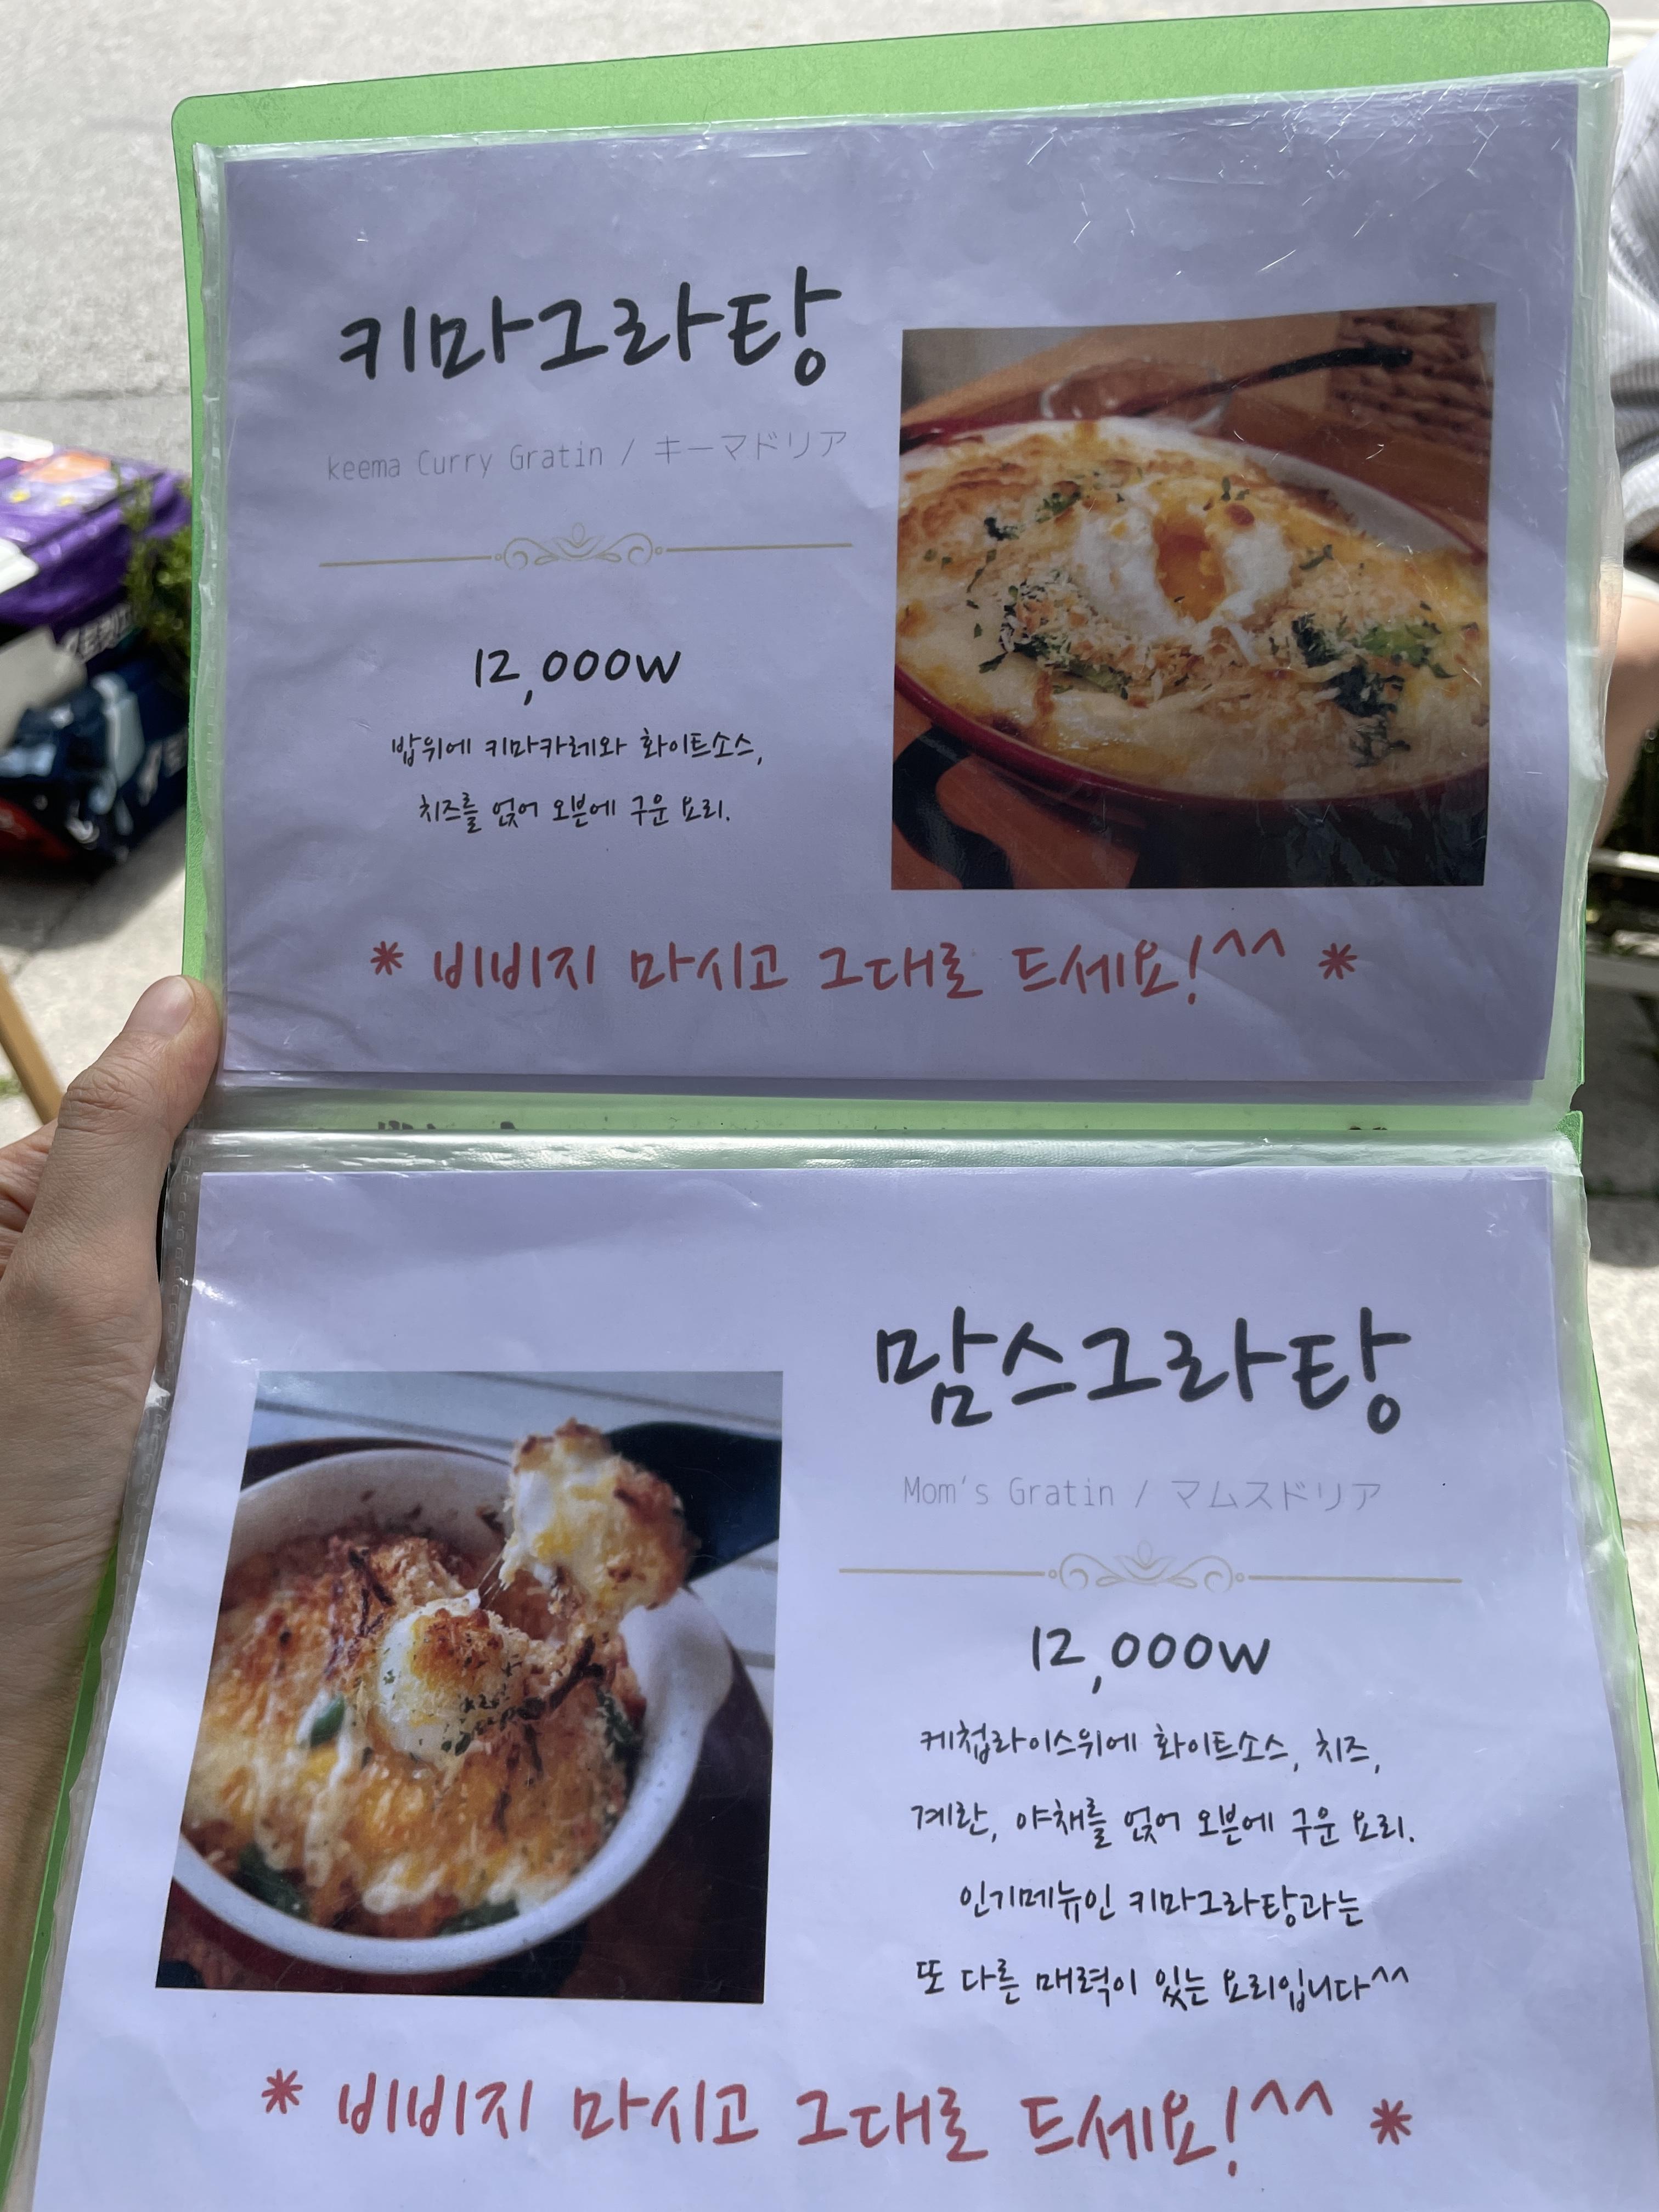 키마그라탕
keema Curry Gratin / キーマドリア
12,000w
밥위에 키마카레와 화이트소스,
치즈를 얹어 오븐에 구운 요리.
* 비비지 마시고 그대로 드세요!^^ *
맘스그라탕
Mom's Gratin / マムスドリア
12,000w
케첩라이스위에 화이트소스, 치즈,
계란, 야채를 얹어 오븐에 구운 요리.
인기메뉴인 키마그라탕과는
또 다른 매력이 있는 요리입니다^^
* 비비지 마시고 그대로 드세요!^^ *